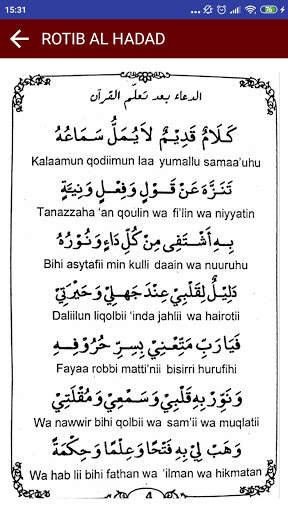 15:31
76%
ROTIB AL HADAD
الدعاء بعد تعلّم القرآن
كَلَامٌ قَدِيْمٌ لَا يُمَلُّ سَمَاعُهُ
Kalaamun qodiimun laa yumallu samaa'uhu
تَنَزَّهَ عَنْ قَوْلٍ وَفِعْلٍ وَنِيَّةٍ
Tanazzaha 'an qoulin wa fi'lin wa niyyatin
بِهِ أَشْتَفِى مِنْ كُلِّ دَاءٍ وَنُوْرُهُ
Bihi asytafii min kulli daain wa nuuruhu
دَلِيْلٌ لِقَلْبِيْ عِنْدَ جَهْلِيْ وَحَيْرَتِيْ
Daliilun liqolbii 'inda jahlii wa hairotii
فَيَارَبِّ مَتِّعْنِيْ بِسِرِّ حُرُوْفِهِ
Fayaa robbi matti'nii bisirri hurufihi
وَنَوِّرْ بِهِ قَلْبِيْ وَسَمْعِيْ وَمُقْلَتِيْ
Wa nawwir bihi qolbii wa sam'ii wa muqlatii
وَهَبْ لِيْ بِهِ فَتْحًا وَعِلْمًا وَحِكْمَةً
Wa hab lii bihi fathan wa 'ilman wa hikmatan
4